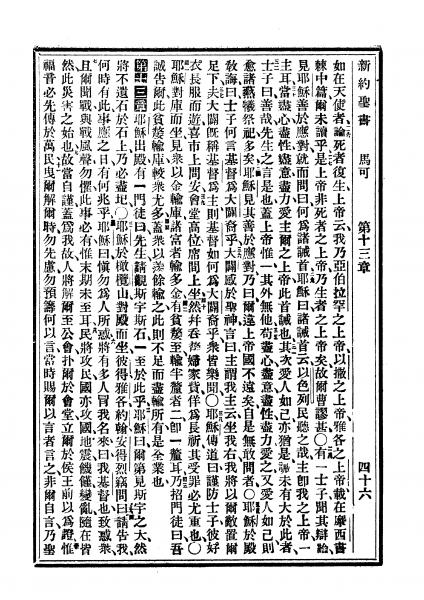 新約聖書 馬可 第十三章 四十六
如在天使者、論死者復生、上帝云、我乃亞伯拉罕之上帝、以撒之上帝、雅各之上帝、載在摩西書
棘中篇爾未讀乎是上帝非死者之上帝乃生者之上帝矣故爾曹謬甚○有一士子聞其辯論
見耶穌善於應對就而問曰何爲諸誡首耶穌曰諸誡首云以色列民聽之哉主卽我之上帝一
主耳當盡心盡性盡意盡力愛主爾之上帝此首誡也其次愛人如己亦猶是誡未有大於此者
士子曰善哉先生之言是也蓋上帝惟一其外無他苟盡心盡意盡性盡力愛之又愛人如己則
愈諸燔犧祭祀多矣耶穌見其善於應對乃曰爾違上帝國不遠矣自是無敢問者○耶穌於殿
敎誨曰士子何言基督爲大闢裔乎大闢感於聖神言曰主謂我主云坐我右我將以爾敵置爾
足下夫大闢旣稱基督爲主則基督如何爲大闢裔乎衆皆樂聞○耶穌傳道曰謹防士子彼好
衣長服而遊喜市上問安會堂高位席間上坐然幷吞嫠婦家貲佯爲長祈其受罪必尤重也○
耶穌對庫而坐見衆以金輸庫諸富者輸多金有貧嫠至輸半釐者二卽一釐耳乃招門徒曰吾
誠告爾此貧嫠輸庫較衆尤多蓋衆以羨餘輸之此則不足而盡輸所有是全業也
第十三章耶穌出殿有一門徒曰先生請觀斯宇斯石一至於此乎耶穌曰爾第見斯宇之大然
將不遺石於石上乃必盡圮○耶穌於橄欖山對殿而坐彼得雅各約翰安得烈竊問曰請告我
何時有此事應之日有何兆乎耶穌曰愼勿爲人所惑將有多人冒我名來曰我基督也致惑衆
且爾聞戰與戰風聲勿懼此事必有惟末期未至耳民將攻民國亦攻國地震饑饉變亂隨在皆
然此災害之始也故當自謹蓋爲我故人將解爾至公會扑爾於會堂立爾於侯王前以爲證惟
福音必先傳於萬民曳爾解爾時勿先慮勿預籌何以言當時賜爾以言者言之非爾自言乃聖